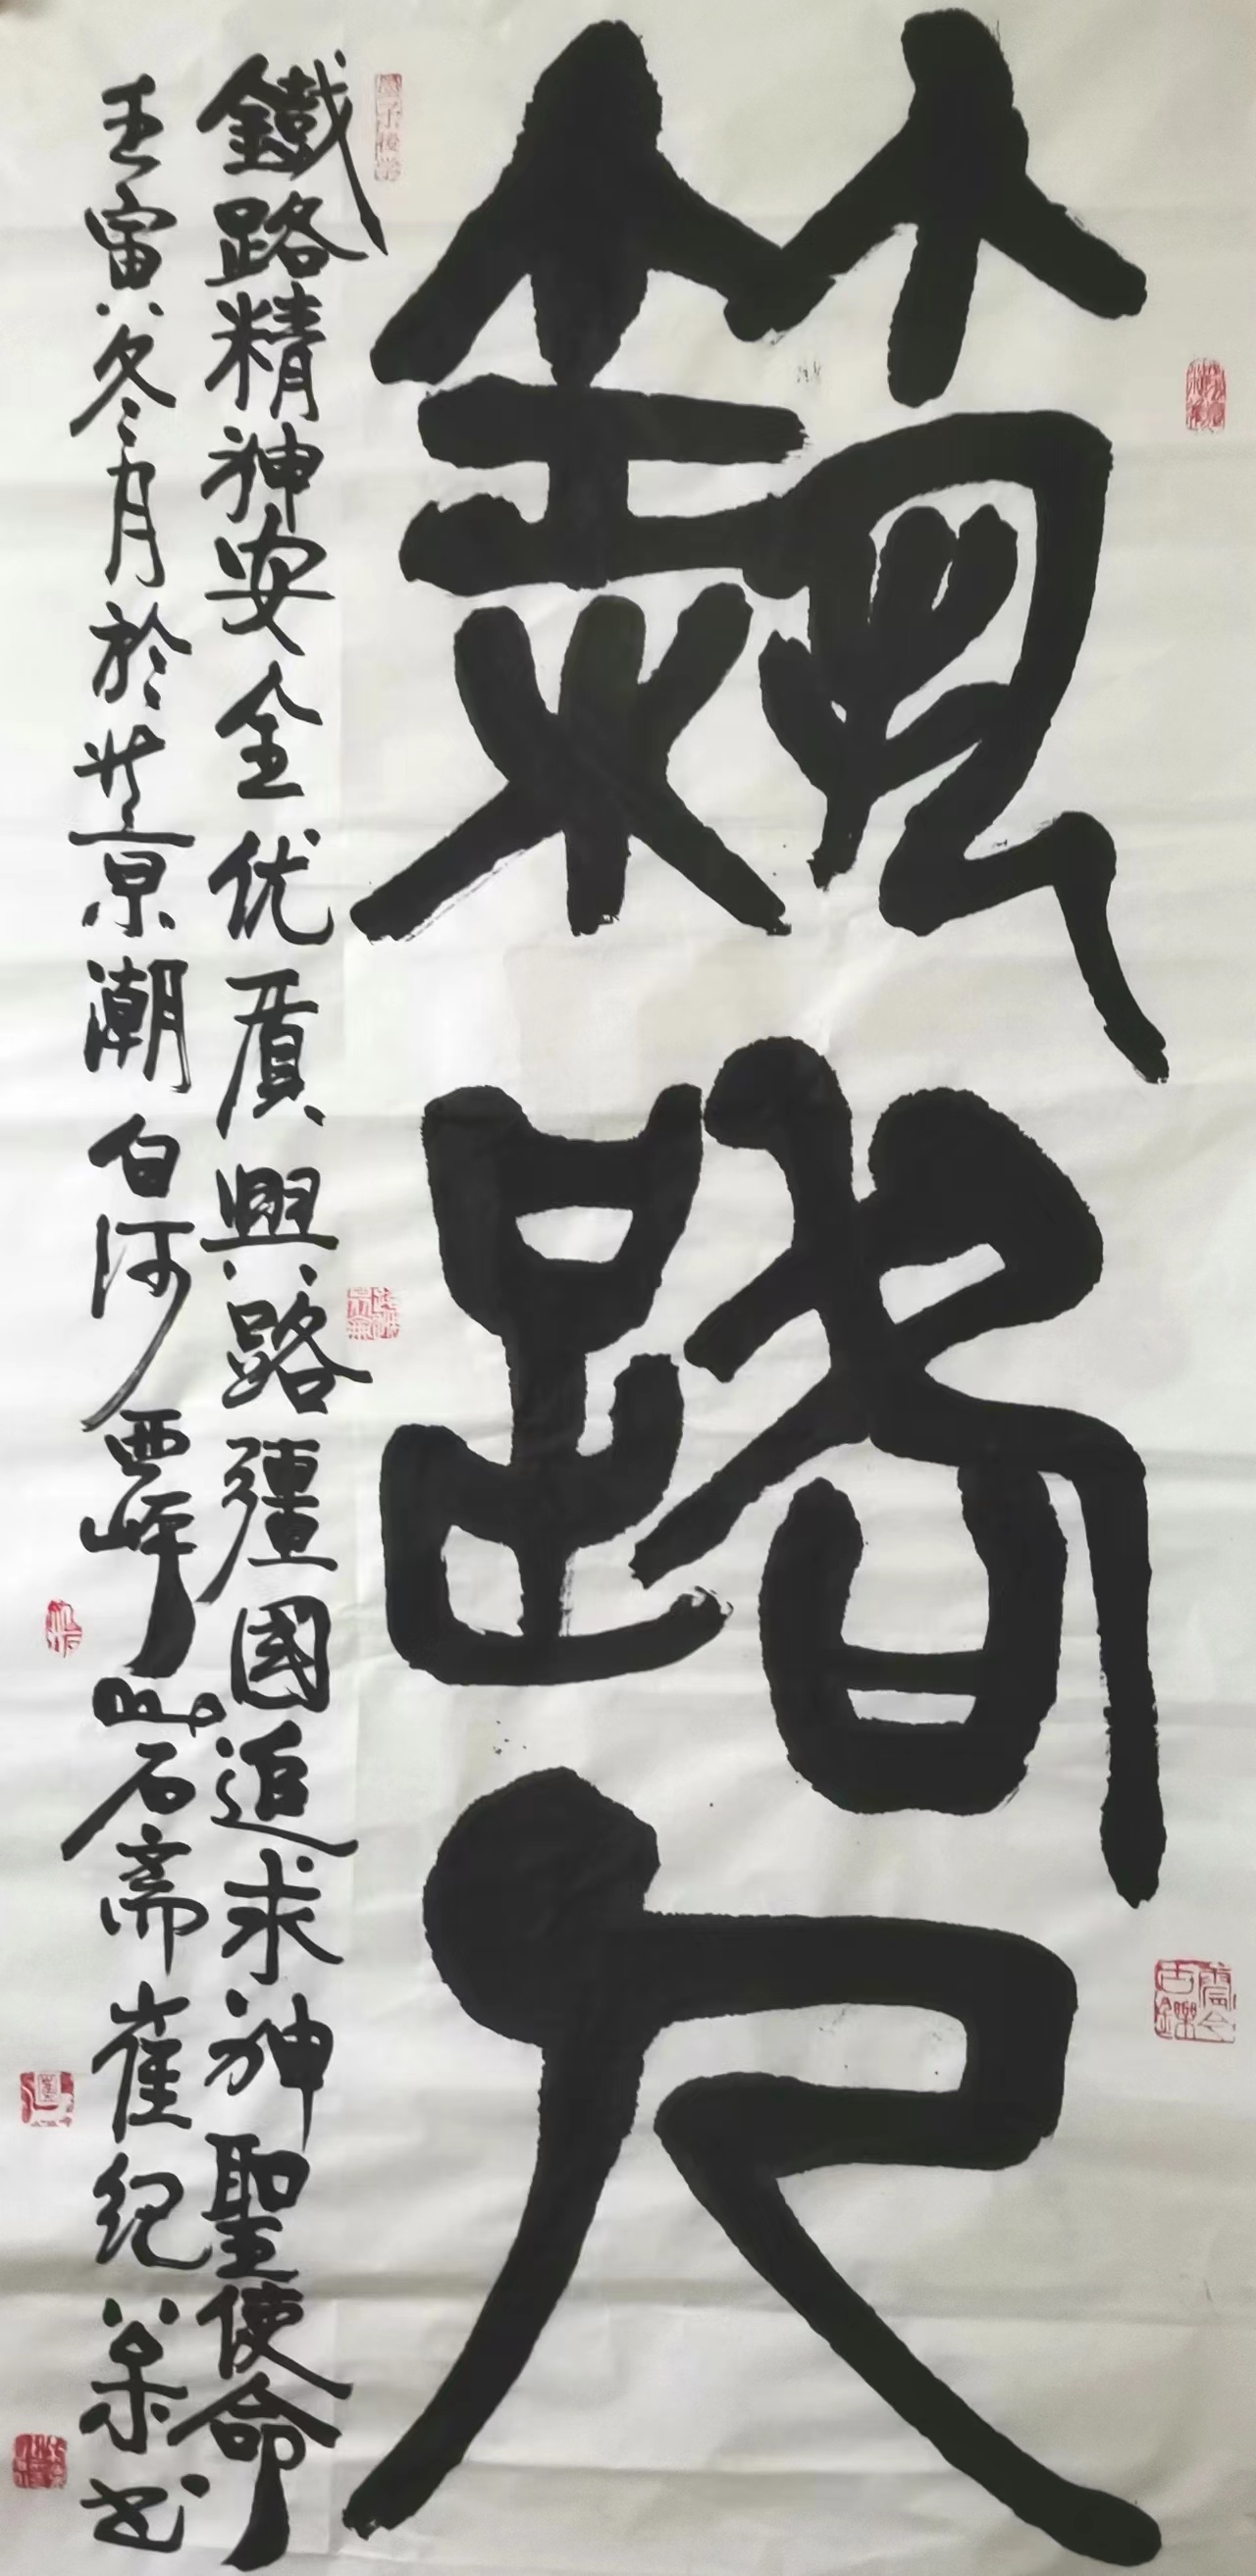 路
鐵路精神安全优質興路彊國追求神聖使命
壬寅冬月於北京潮白河西岸石斋崔纪书